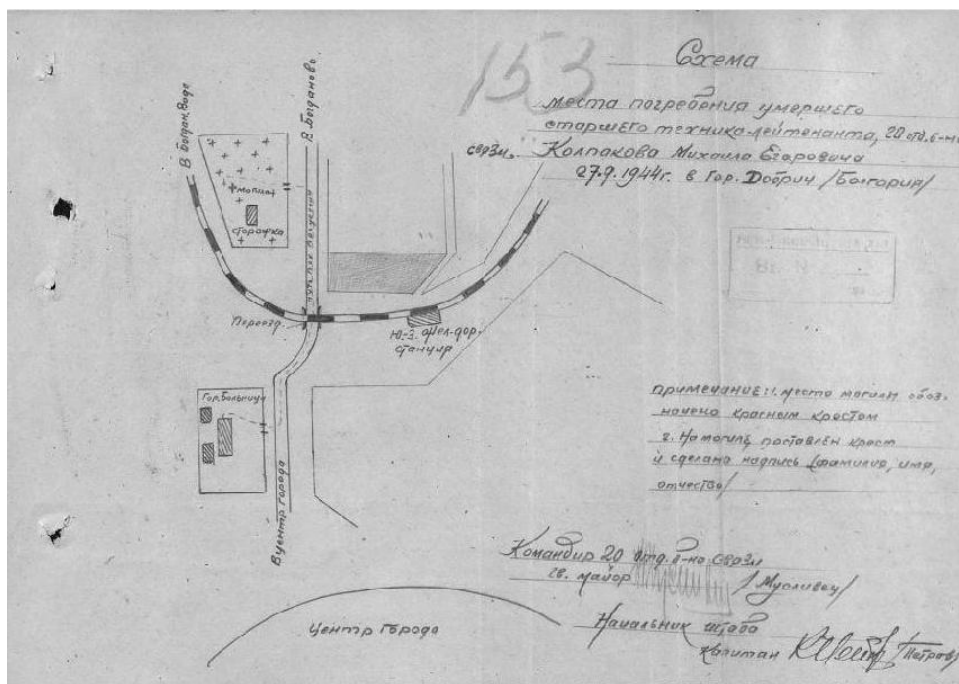 153
Схема
места погребения умершего
старшего техника-лейтенанта, 20 отд. б-на
связи. Колпакова Михаила Егоровича
27.9.1944г. в гор. Добрич /Болгария/
В. Богдан. воде
В. Богданово.
могила
сторожка
Переезд.
Ю-З. Жел-дор-
станция
Гор. больница
В центр города
Центр города
примечание: 1. место могилы обоз-
начено красным крестом
2. На могиле поставлен крест
и сделана надпись (фамилия, имя,
отчество/
Командир 20 отд. б-на связи
гв. майор
Начальник штаба
капитан /Петров/